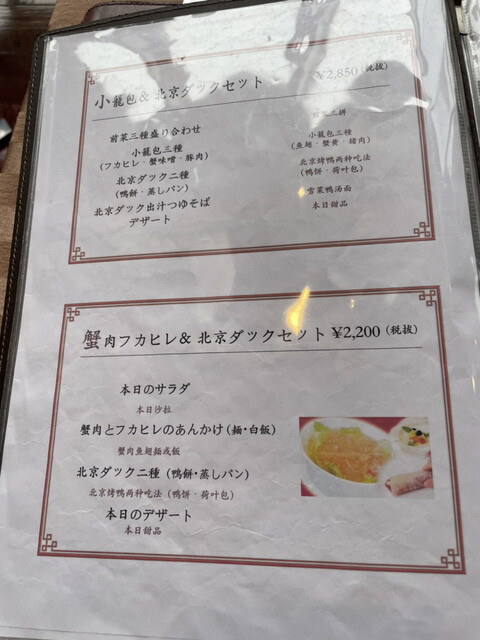 小龍包& 北京ダックセット ¥2,850 (税抜)
前菜三種盛り合わせ
前菜三拼
小龍包三種
(フカヒレ・蟹味噌・豚肉)
小龍包三種
(鱼翅・蟹黄・猪肉)
北京ダック二種
(鴨餅・蒸しパン)
北京烤鸭两种吃法
(鸭饼・荷叶包)
北京ダック出汁つゆそば
雪菜鸭汤面
デザート
本日甜品
蟹肉フカヒレ& 北京ダックセット ¥2,200 (税抜)
本日のサラダ
本日沙拉
蟹肉とフカヒレのあんかけ(麺・白飯)
蟹肉鱼翅麺或飯
北京ダック二種 (鴨餅・蒸しパン)
北京烤鸭两种吃法 (鸭饼・荷叶包)
本日のデザート
本日甜品